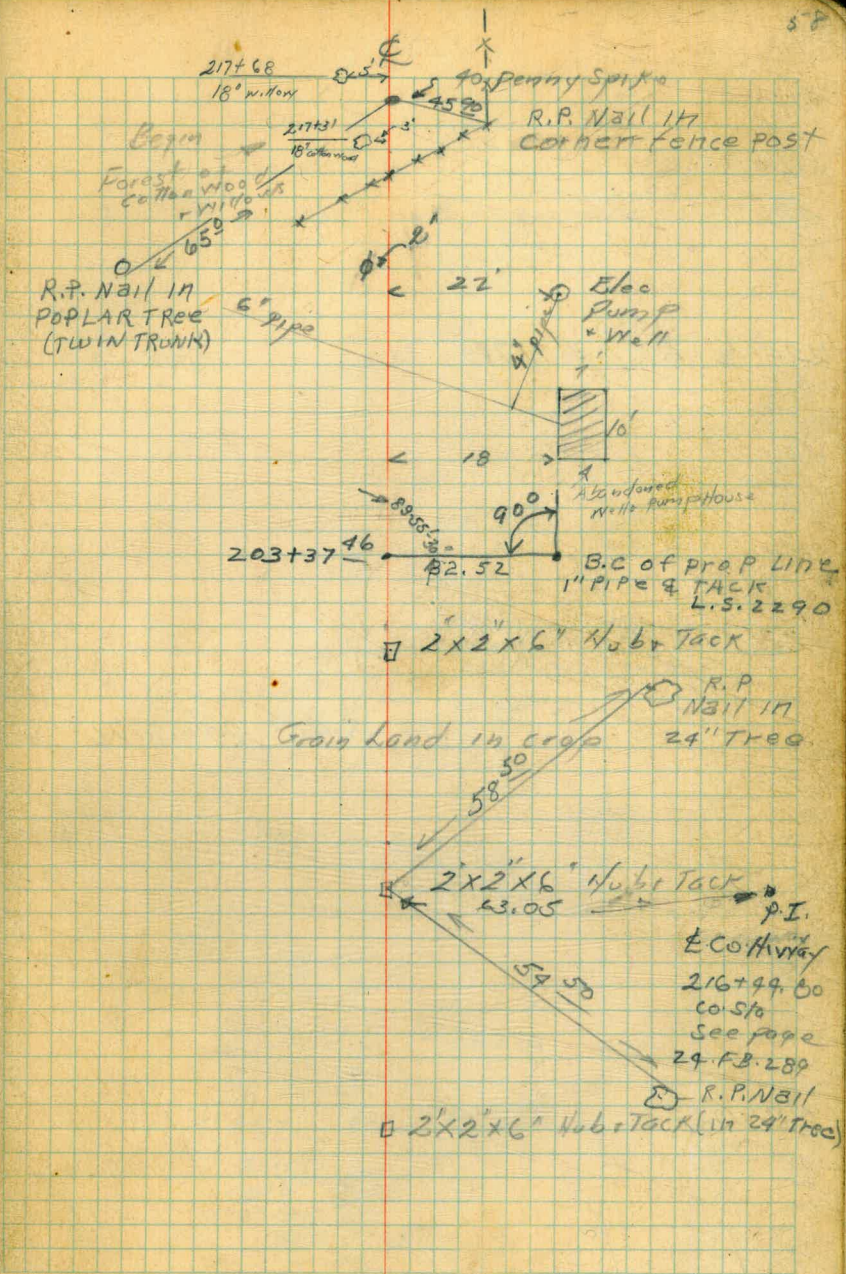 58
℄
217+68
5'
18" willow
40 Penny Spike
45 90
R.P. Nail in
Corner fence post
217+31
3'
18" Cottonwood
Begin
Forest of
Cotton Wood
+ Willows
65 0
2"
R.P. Nail in
POPLAR TREE
(TWIN TRUNK)
22'
Elec
Pump
+ Well
6" Pipe
4" Pipe
7'
10'
18
Abandoned
Well & Pump House
89-55-30"
90°
203+37 46
82.52
B.C of prop Line
1" PIPE & TACK
L.S. 2290
2"x2"x6" Hub + Tack
R.P
Nail in
24" Tree
Grain Land in crop
58 50
2"x2"x6" Hub + Tack
63.05
P.I.
℄ Co. Hiway
216+44.80
Co. Sta
See page
24 F.B. 289
54 50
R.P. Nail
2"x2"x6" Hub + Tack (in 24" Tree)